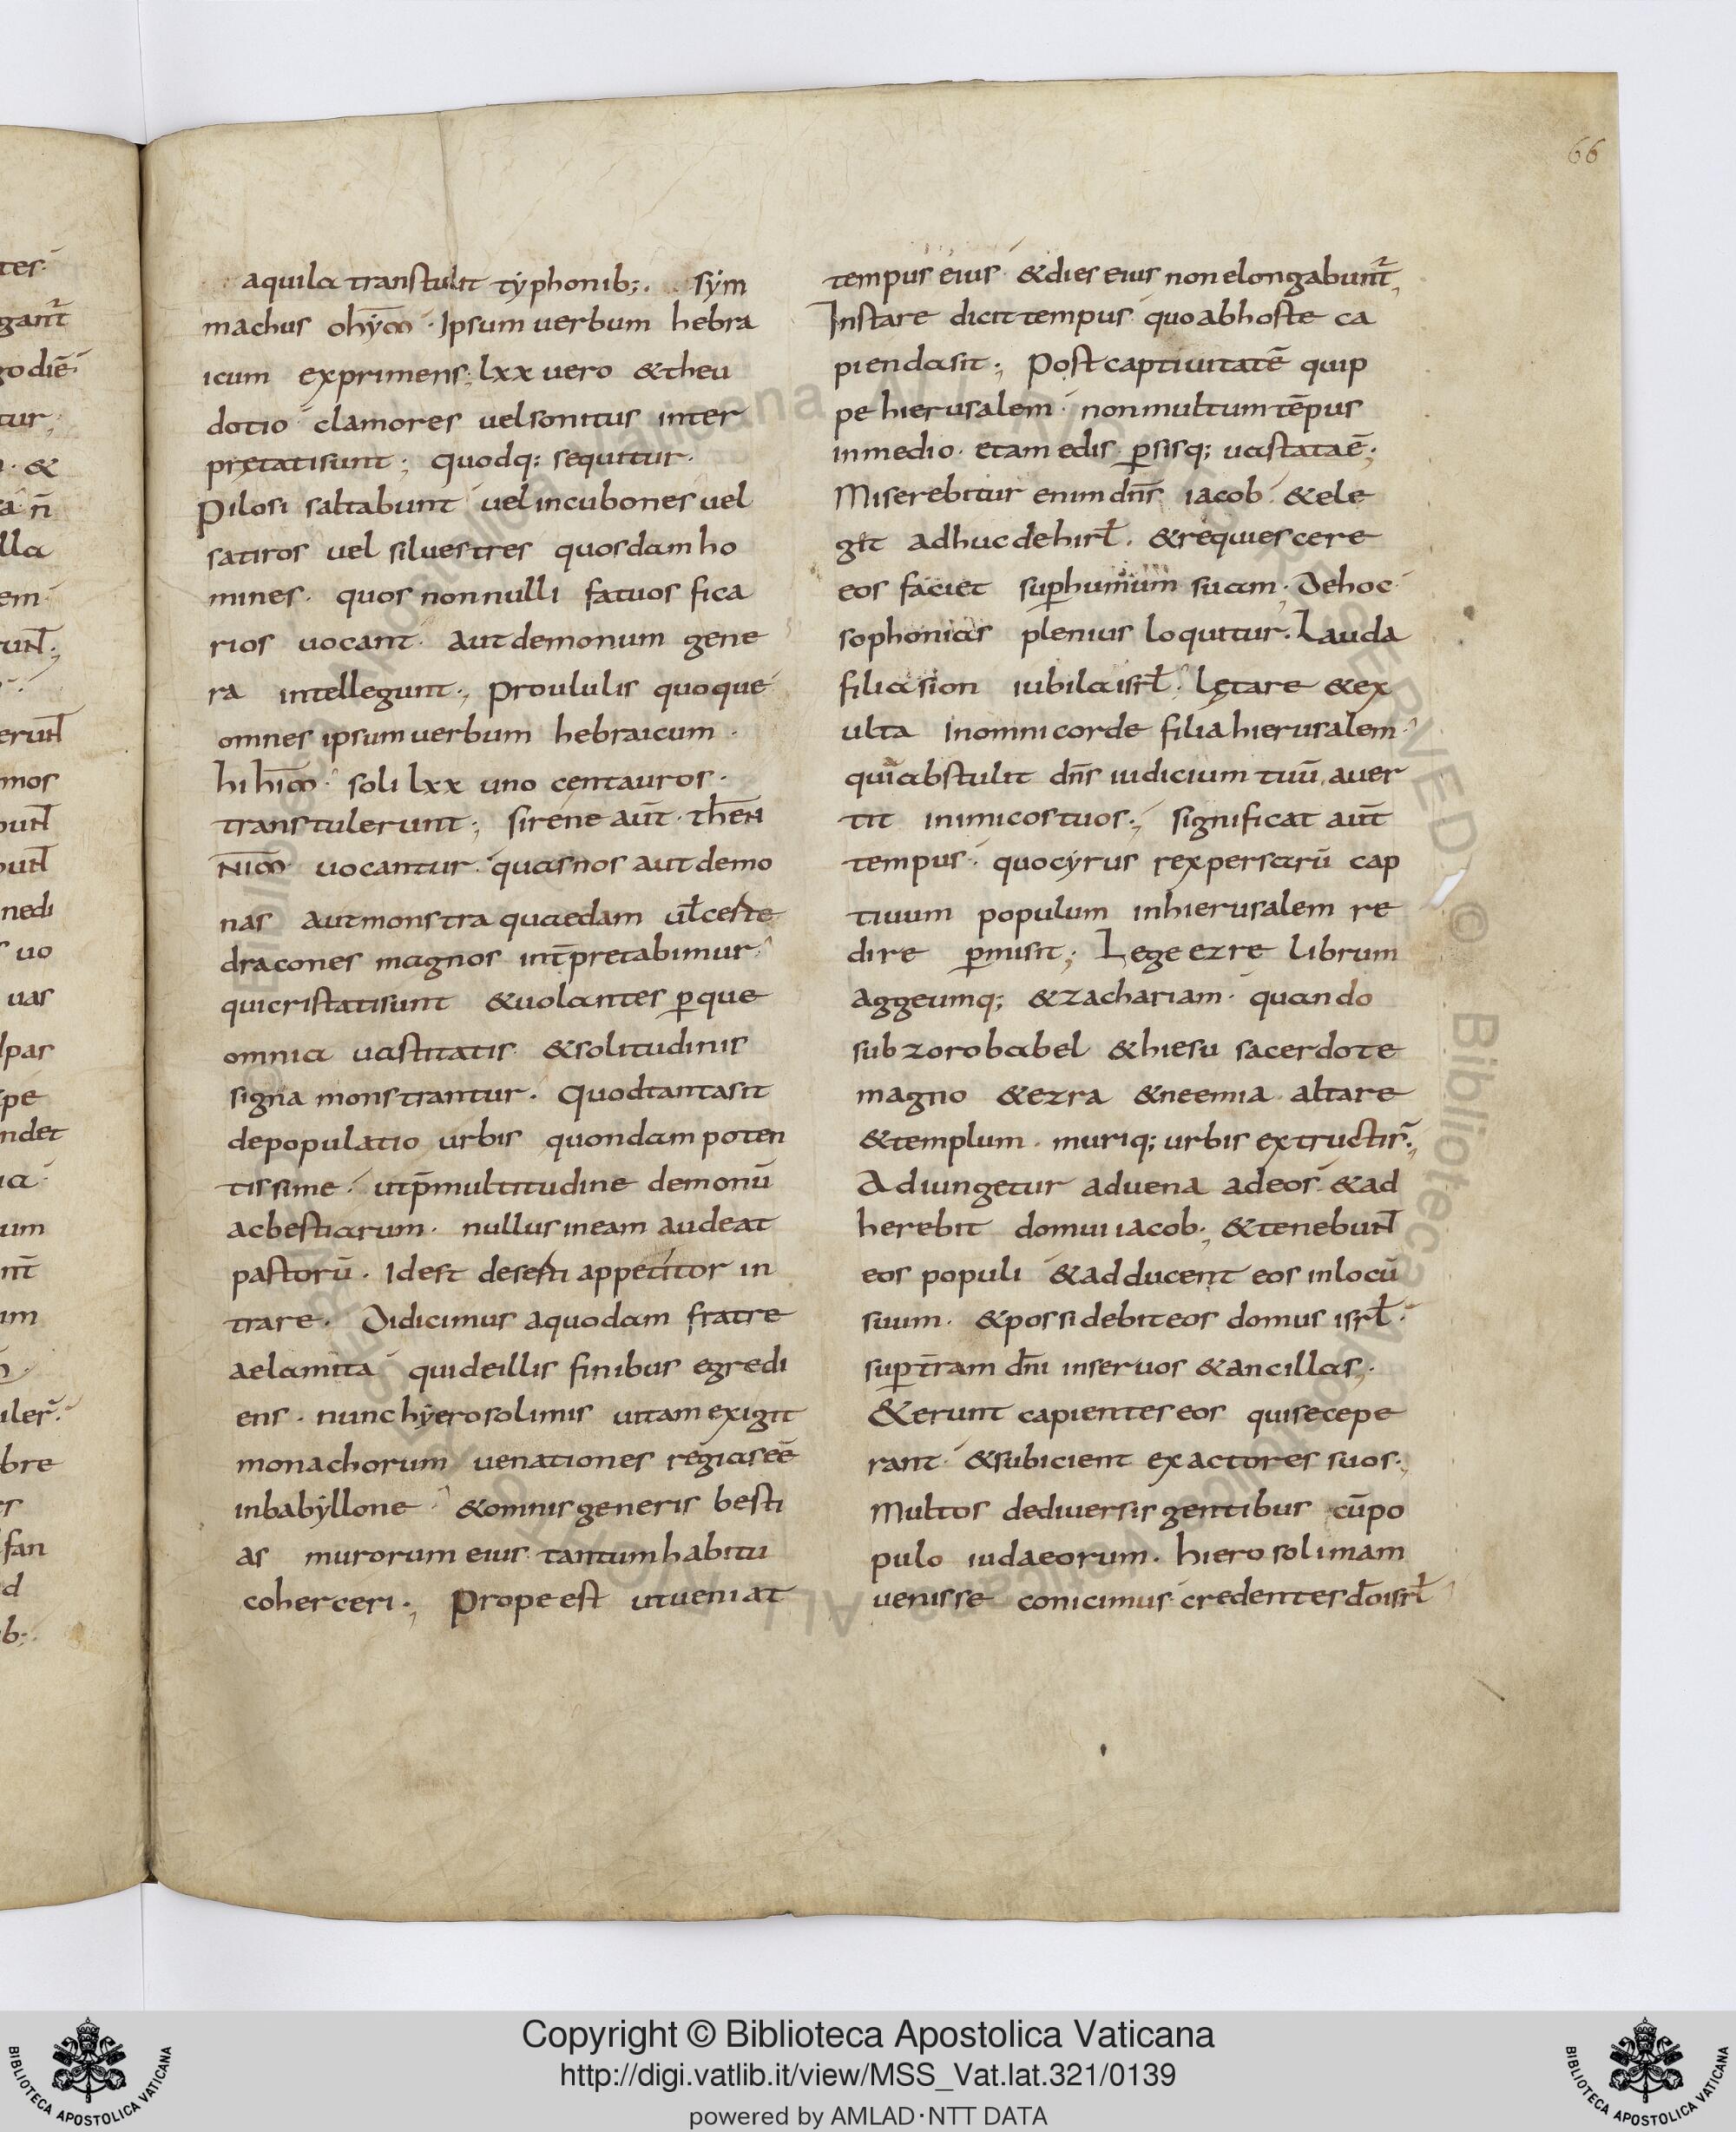 66
aquila transtulit typhonib;. sym
machus ohẏm̅ · Ipsum uerbum hebra
icum exprimens; lxx uero & theu
dotio clamores uel sonitus inter
prętati sunt; quodq; sequitur·
Pilosi saltabunt uel incubones uel
satiros uel siluestres quosdam ho
mines· quos non nulli fatuos fica
rios uocant· aut demonum gene
ra intellegunt; Pro ululis quoque
omnes ipsum uerbum hebraicum·
hi him̅· soli lxx uno centauros·
transtulerunt; sirene aut̅· then̅
nim̅ uocantur· quas nos aut demo
nas aut monstra quaedam ul̅ certe
dracones magnos int̅pretabimur·
qui cristati sunt & uolantes p̲ que
omnia uastitatis & solitudinis
signa monstrantur. Quod tanta sit
depopulatio urbis quondam poten
tissime· ut p̅ multitudine demonū
ac bestiarum· nullus in eam audeat
pastorū· Id est deserti appetitor in
trare. Didicimus a quodam fratre
aelamita qui de illis finibus egredi
ens· nunc hẏerosolimis uitam exigit
monachorum uenationes regias eē
in babẏllone & omnis generis besti
as murorum eius tantum habitu
coherceri; Prope est ut ueniat
tempus eius & dies eius non elongabunt̅,
Instare dicit tempus quo ab hoste ca
pienda sit; Post captiuitatē quip
pe hierusalem· non multum tēpus
in medio· et a medis p̲sisq; uastata ē;
Miserebitur enim dn̅s iacob & ele
git adhuc de hirl̅. & requiescere
eos faciet sup̲ humum suam· De hoc
sophonias plenius loquitur. Lauda
filia sion iubila isrl̅· lętare & ex
ulta In omni corde filia hierusalem·
quia abstulit dn̅s iudicium tuū, auer
tit inimicos tuos; significat aut̅
tempus· quo cẏrus rex persarū cap
tiuum populum in hierusalem re
dire p̲misit; Lege ezre librum
aggeumq; & zachariam· quando
sub zorobabel & hiesu sacerdote
magno & ezra & neemia altare
& templum· muriq; urbis extructi s̅;
Adiungetur aduena ad eos & ad
herebit domui iacob; & tenebunt̅
eos populi & adducent eos in locū
suum· & possidebit eos domus isrl̅·
sup̲ t̅ram dn̅i in seruos & ancillas·
& erunt capientes eos qui se cepe
rant & subicient exactores suos;
Multos de diuersis gentibus cū po
pulo iudaeorum· hierosolimam
uenisse conicimus credentes do̅ isrl̅
Copyright © Biblioteca Apostolica Vaticana
http://digi.vatlib.it/view/MSS_Vat.lat.321/0139
powered by AMLAD·NTT DATA
BIBLIOTECA APOSTOLICA VATICANA
BIBLIOTECA APOSTOLICA VATICANA